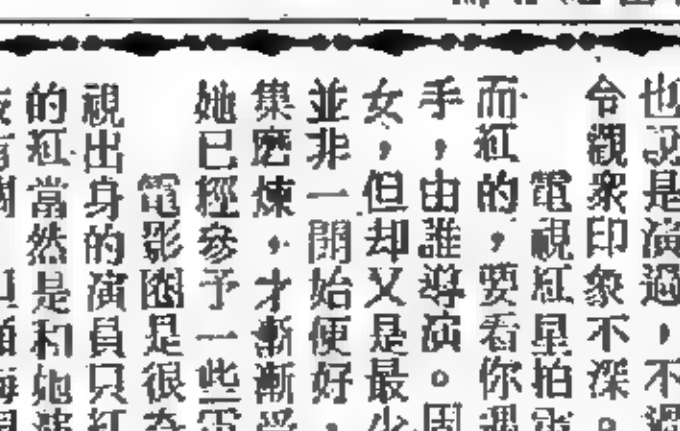 也說是演過，不過
令觀衆印象不深。
電視紅星拍電
而紅的，要看你遇
手，由誰導演。周
女，但却又是最少
並非一開始便好，
集磨煉，才漸漸受
她已經參予一些電
電影圈是很奇
視出身的演員只紅
的紅當然是和她演